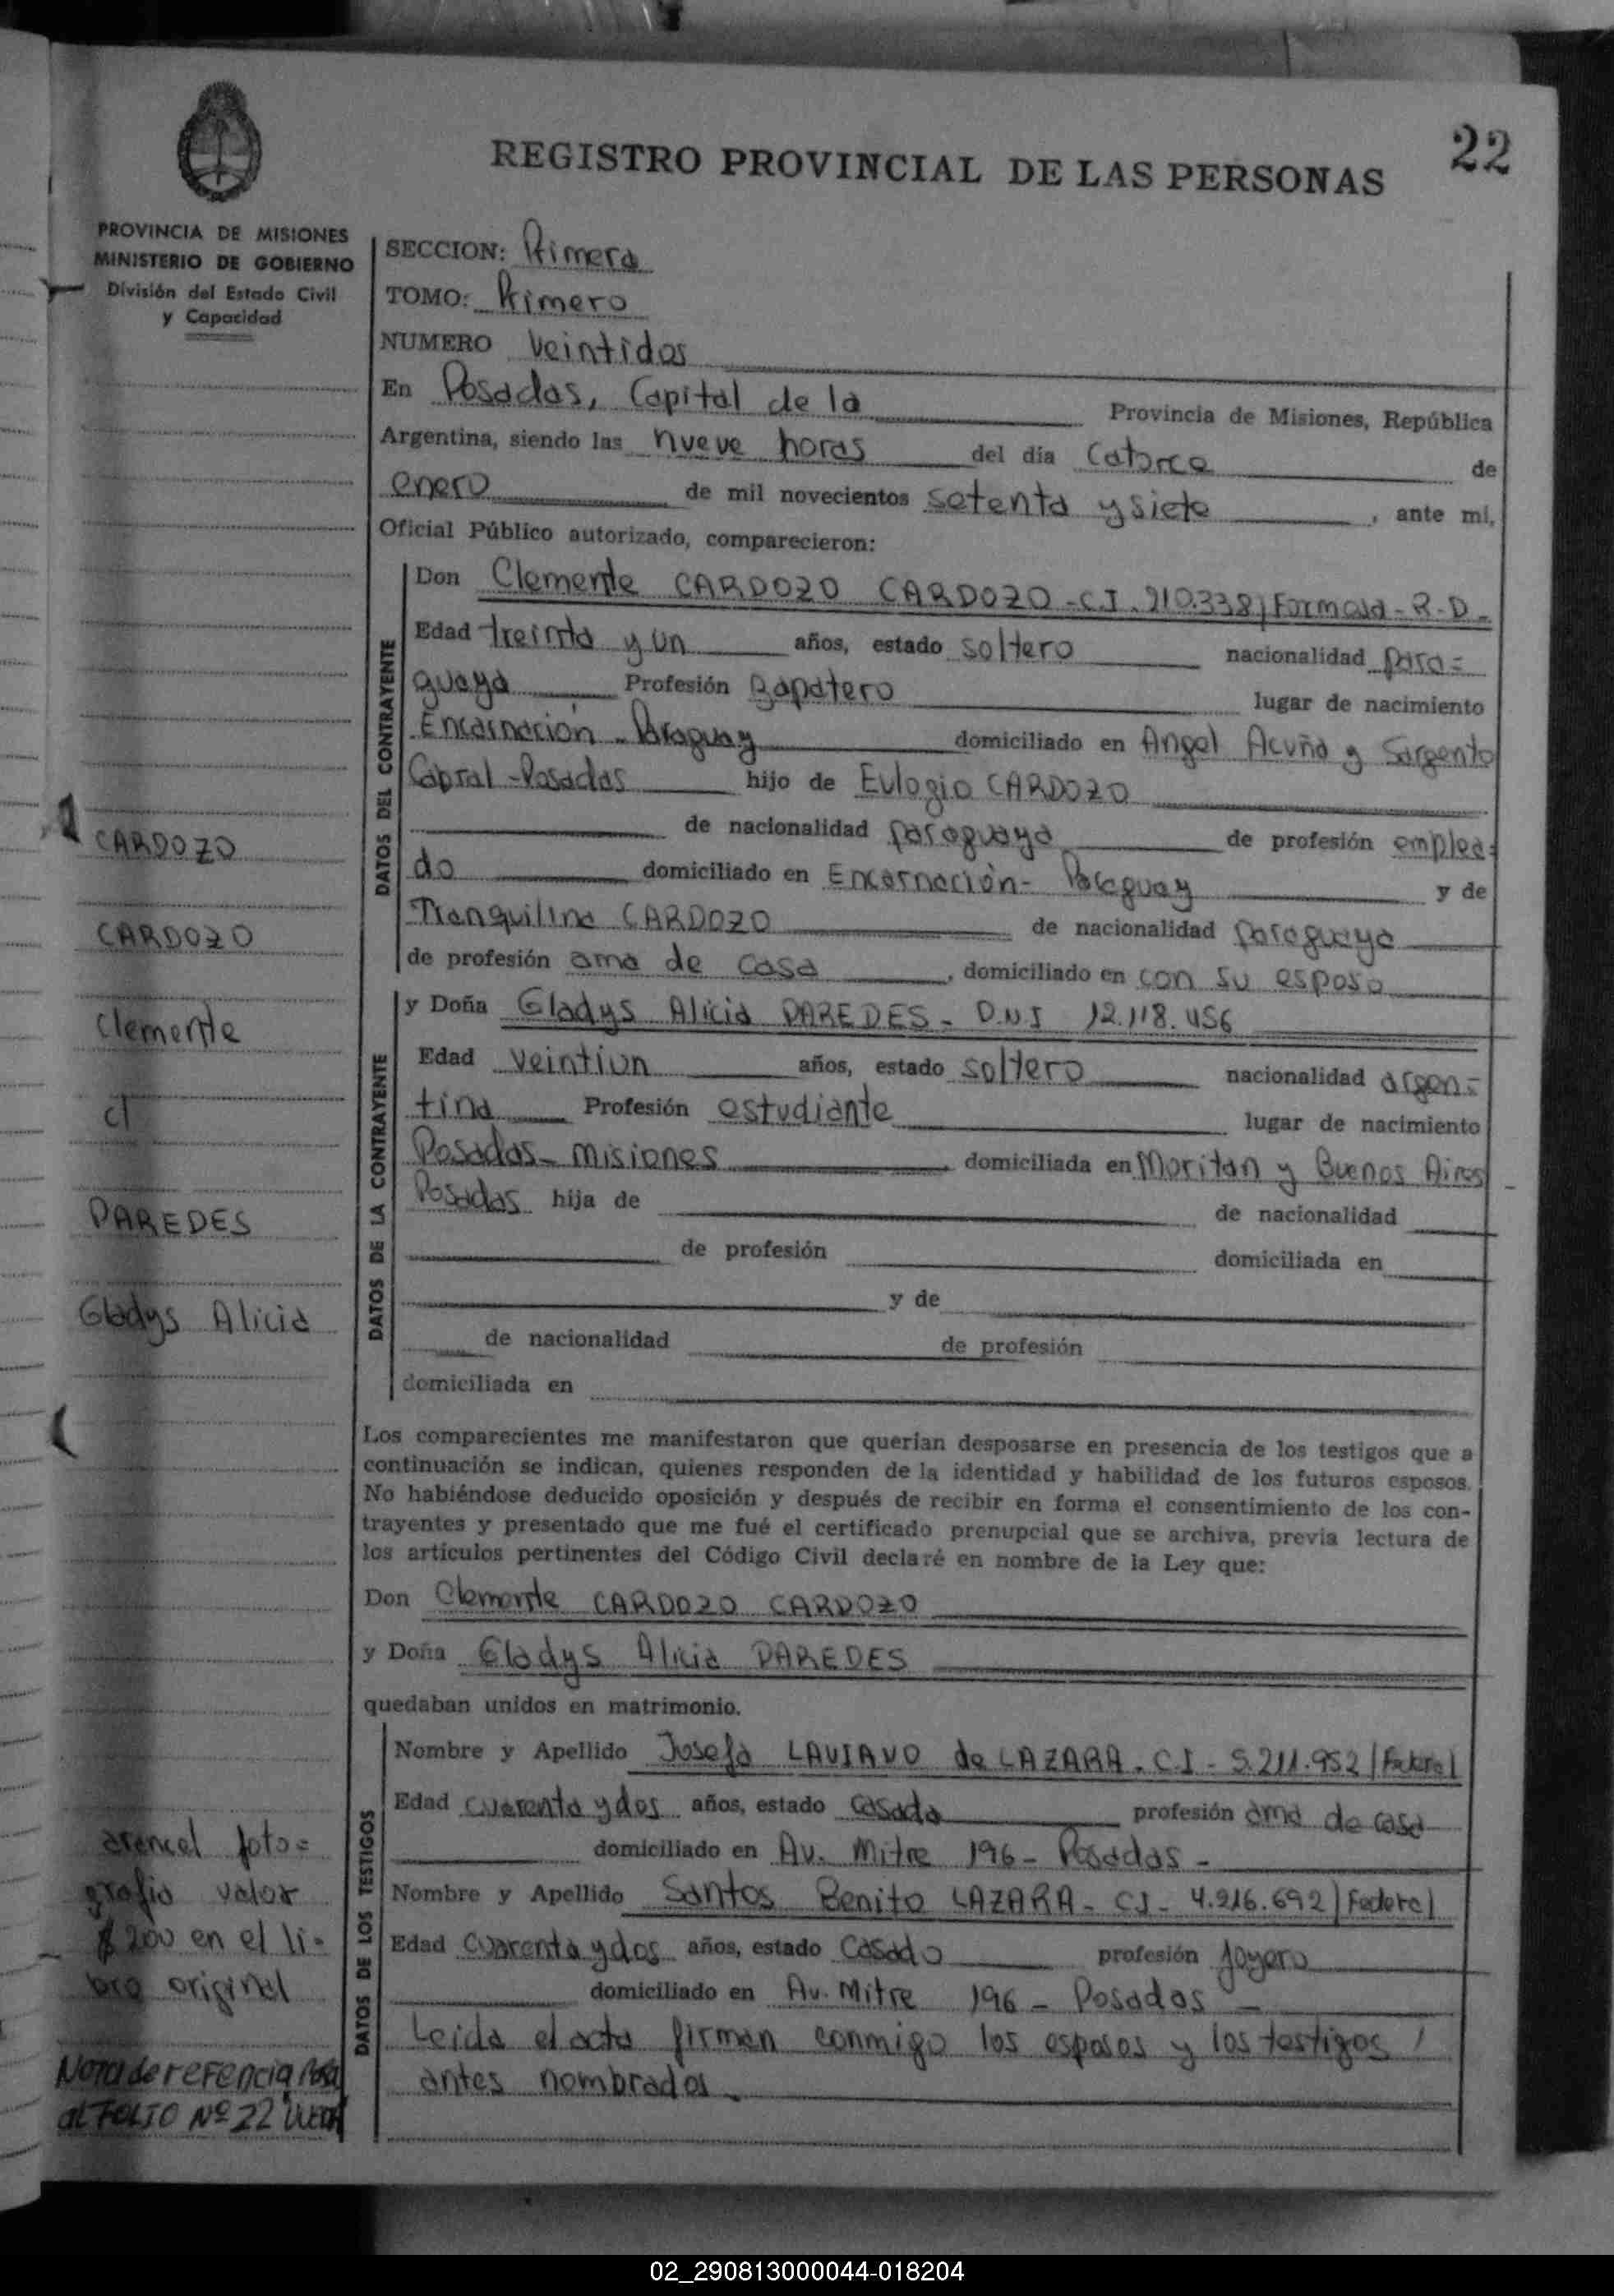 22
REGISTRO PROVINCIAL DE LAS PERSONAS
PROVINCIA DE MISIONES
MINISTERIO DE GOBIERNO
División del Estado Civil
y Capacidad
SECCION: Primera
TOMO: Primero
NUMERO Veintidos
En Posadas, Capital de la Provincia de Misiones, República
Argentina, siendo las nueve horas del día Catorce de
enero de mil novecientos setenta y siete, ante mi,
Oficial Público autorizado, comparecieron:
DATOS DEL CONTRAYENTE
Don Clemente CARDOZO CARDOZO - C.I. 210.338/Formosa - R-D-
Edad treinta y un años, estado soltero nacionalidad para=
guaya Profesión Zapatero lugar de nacimiento
Encarnación - Paraguay domiciliado en Angel Acuña y Sargento
Cabral - Posadas hijo de Eulogio CARDOZO
de nacionalidad paraguaya de profesión emplea=
do domiciliado en Encarnación - Paraguay y de
Tranquilina CARDOZO de nacionalidad paraguaya
de profesión ama de casa, domiciliado en con su esposo
DATOS DE LA CONTRAYENTE
y Doña Gladys Alicia PAREDES - D.N.I 12.118.456
Edad veintiun años, estado soltero nacionalidad argen=
tina Profesión estudiante lugar de nacimiento
Posadas - Misiones domiciliada en Moritan y Buenos Aires
Posadas hija de de nacionalidad
de profesión domiciliada en
y de
de nacionalidad de profesión
domiciliada en
Los comparecientes me manifestaron que querían desposarse en presencia de los testigos que a
continuación se indican, quienes responden de la identidad y habilidad de los futuros esposos.
No habiéndose deducido oposición y después de recibir en forma el consentimiento de los con-
trayentes y presentado que me fué el certificado prenupcial que se archiva, previa lectura de
los artículos pertinentes del Código Civil declaré en nombre de la Ley que:
Don Clemente CARDOZO CARDOZO
y Doña Gladys Alicia PAREDES
quedaban unidos en matrimonio.
DATOS DE LOS TESTIGOS
Nombre y Apellido Josefa LAVIANO de LAZARA - C.I - 5.211.952/Federal
Edad cuarenta y dos años, estado casada profesión ama de casa
domiciliado en Av. Mitre 196 - Posadas -
Nombre y Apellido Santos Benito LAZARA - CI - 4.216.692/Federal
Edad cuarenta y dos años, estado casado profesión joyero
domiciliado en Av. Mitre 196 - Posadas -
Leida el acta firman conmigo los esposos y los testigos
antes nombrados -
CARDOZO
CARDOZO
Clemente
c/
PAREDES
Gladys Alicia
arancel foto=
grafia valor
$ 200 en el li-
bro original
Nota de referencia Pasa
al FOLIO Nº 22
02_290813000044-018204